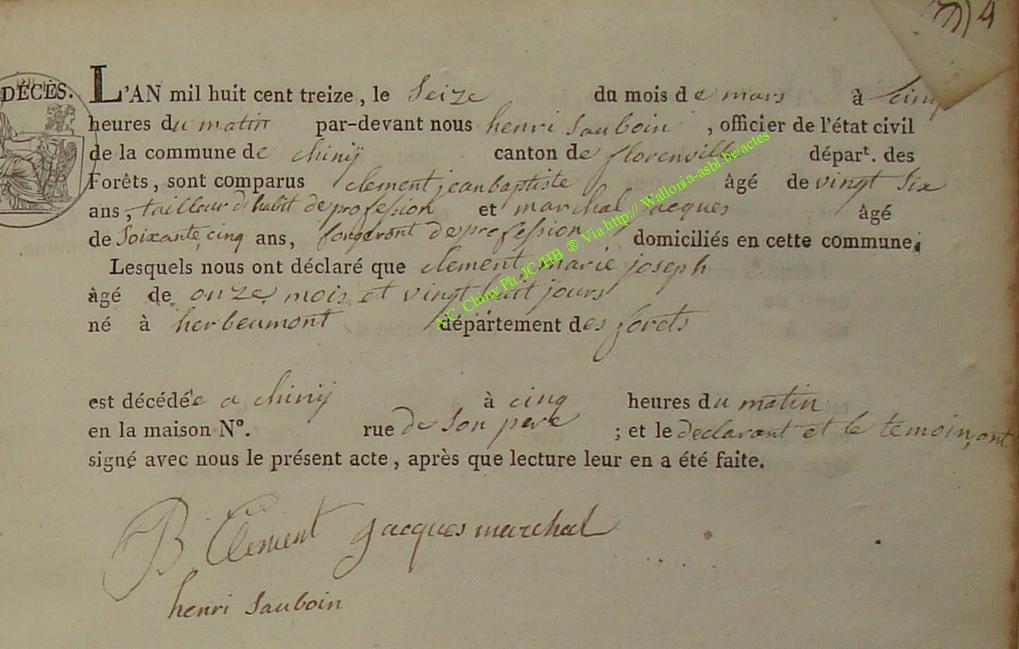 4
DÉCÈS. L'AN mil huit cent treize, le Seize du mois de mars à cinq
heures du matin par-devant nous henri Sauboin, officier de l'état civil
de la commune de chinij canton de florenville départ. des
Forêts, sont comparus clement jean baptiste âgé de vingt Six
ans, tailleur d'habit de profession et marchal jacques âgé
de Soixante, cinq ans, forgeront de profession domiciliés en cette commune,
Lesquels nous ont déclaré que clement, marie joseph
âgé de onze mois et vingt huit jours
né à herbeumont département des forets
est décédée a chinij à cinq heures du matin
en la maison N°. rue de Son pere ; et le declarant et le temoin, ont
signé avec nous le présent acte, après que lecture leur en a été faite.
B Clement jacques marchal
henri Sauboin
A.C. Chiny Ph JC/HB ® Via http:// Wallonia-asbl.be/actes